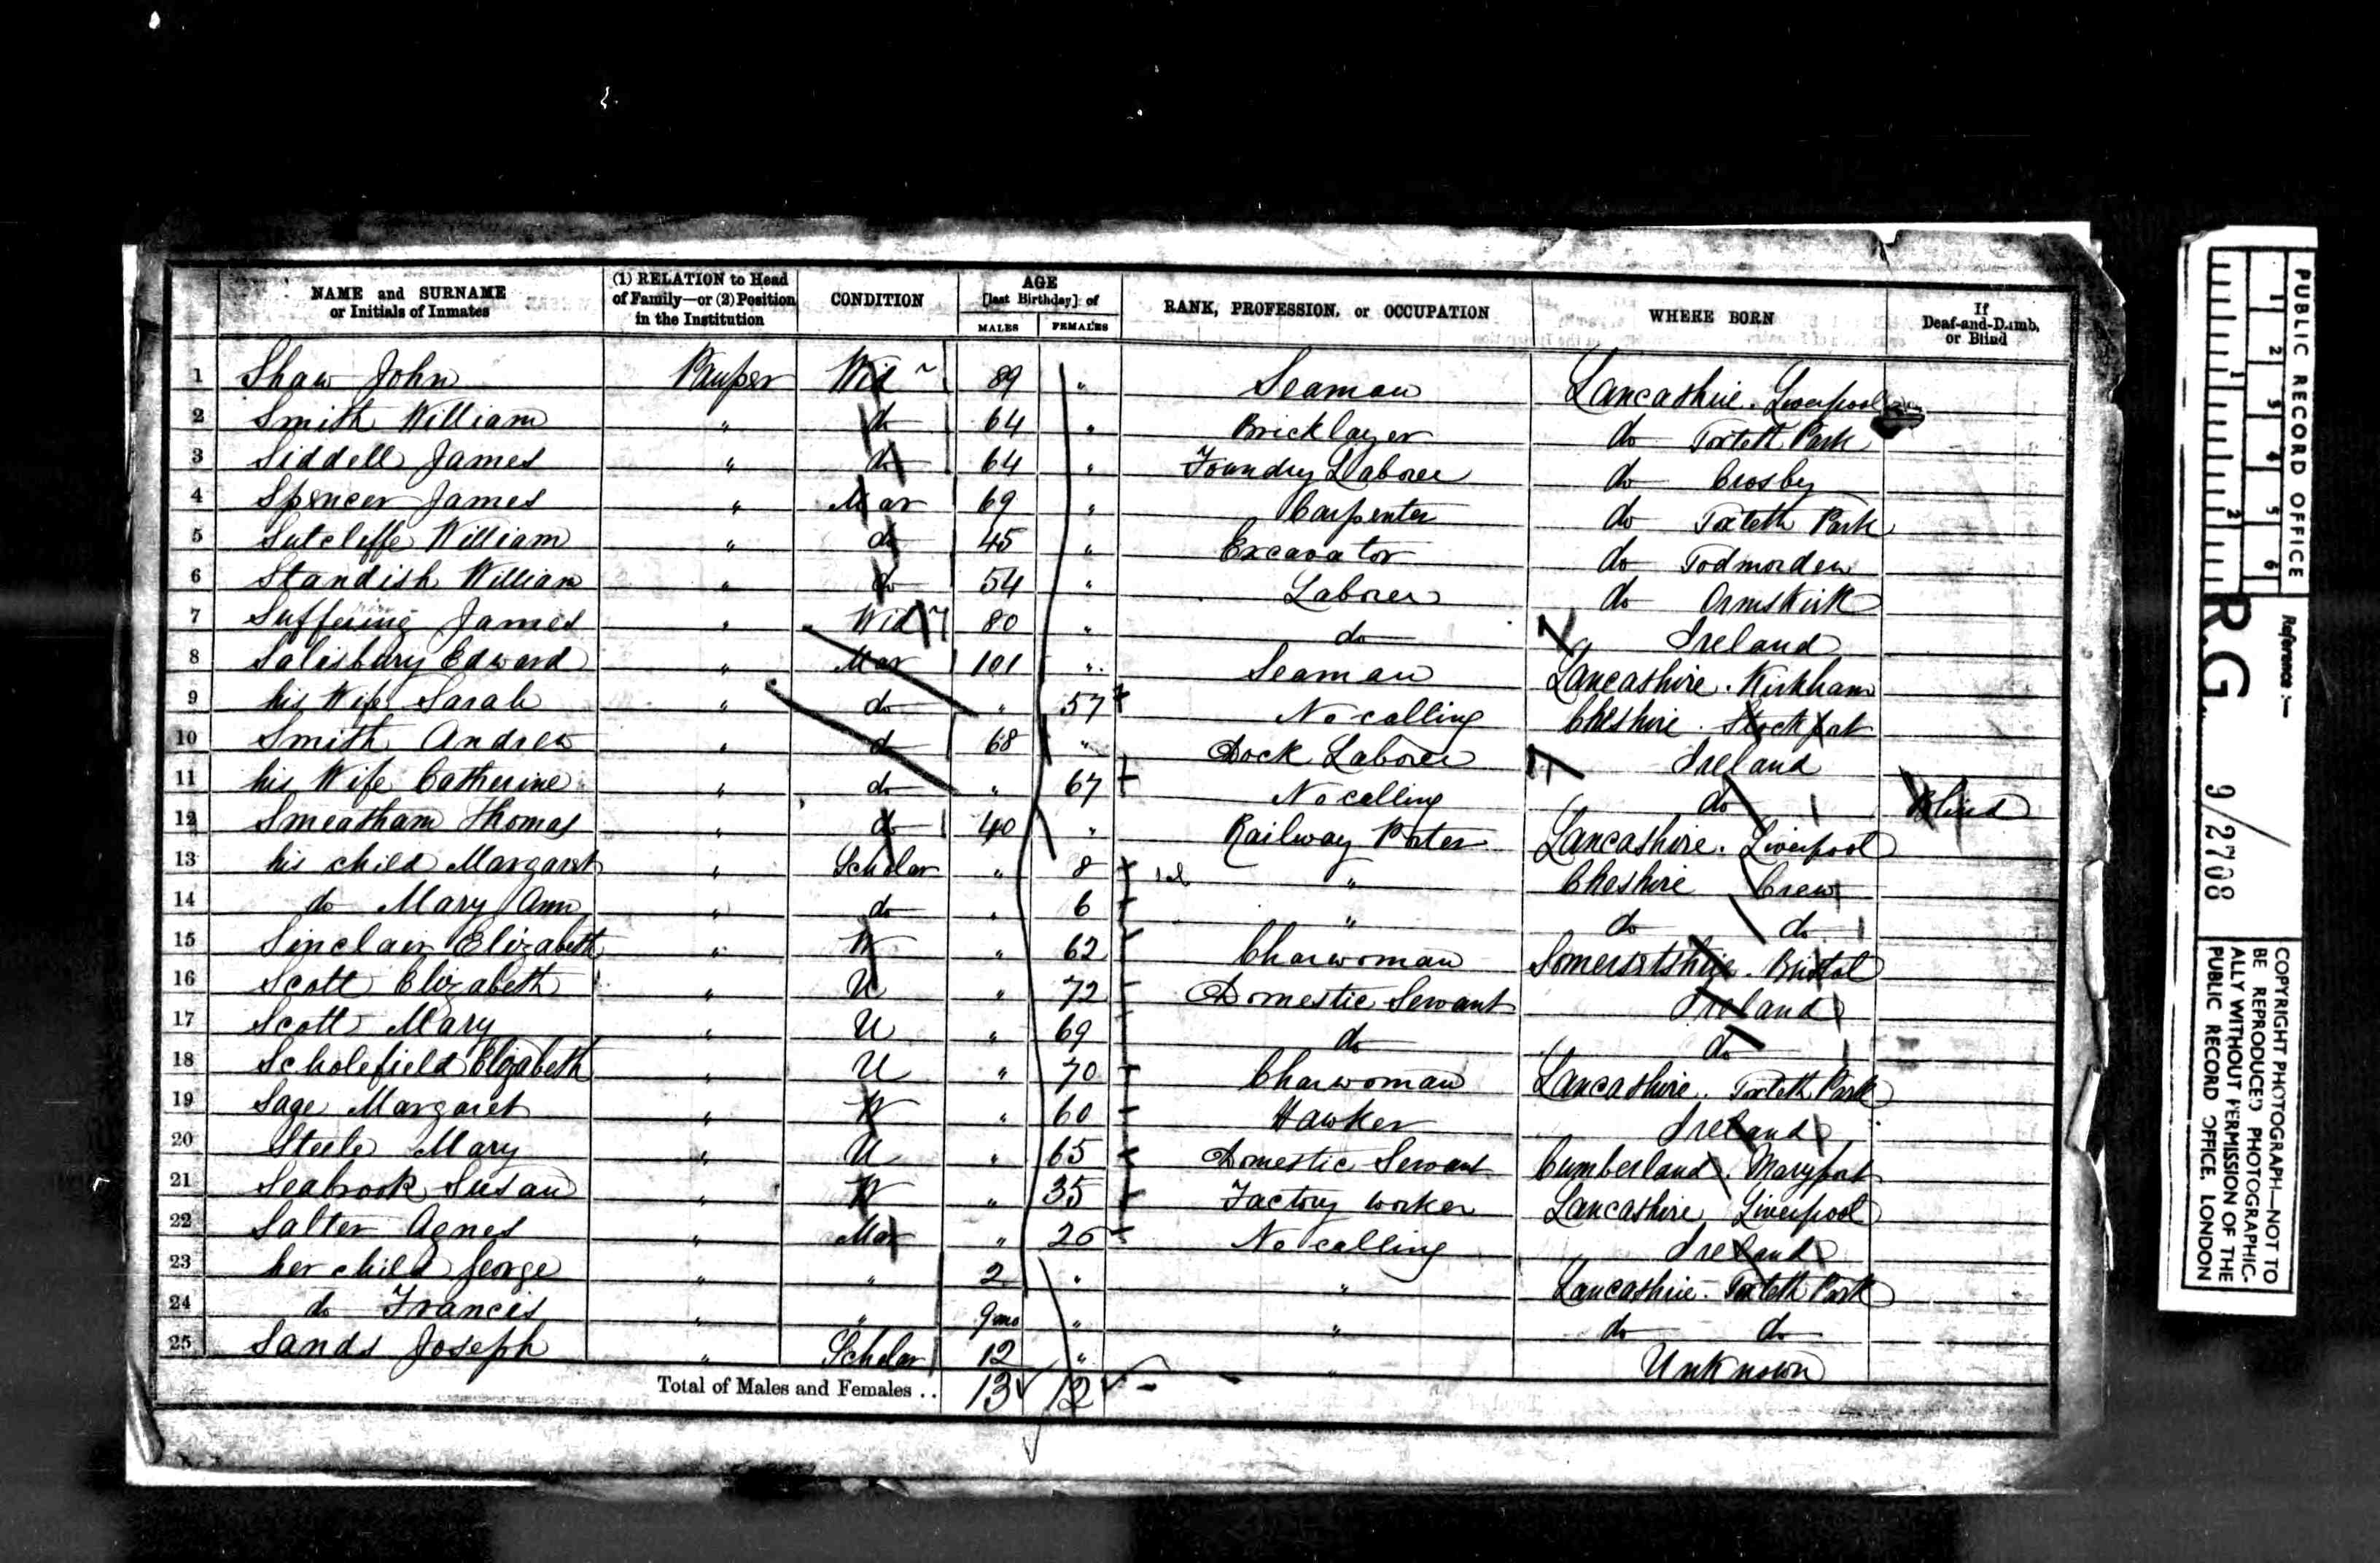 NAME and SURNAME or Initials of Inmates | (1) RELATION to Head of Family—or (2) Position in the Institution | CONDITION | AGE [last Birthday] of MALES FEMALES | RANK, PROFESSION, or OCCUPATION | WHERE BORN | If Deaf-and-Dumb, or Blind
1 Shaw John Pauper Wid 89 " Seaman Lancashire. Liverpool
2 Smith William " do 64 " Bricklayer do Toxteth Park
3 Siddell James " do 64 " Foundry Laborer do Crosby
4 Spencer James " Mar 69 " Carpenter do Toxteth Park
5 Sutcliffe William " do 45 " Excavator do Todmorden
6 Standish William " do 54 " Laborer do Ormskirk
7 James " Wid 80 " do Ireland
8 Salisbury Edward " Mar 101 " Seaman Lancashire. Kirkham
9 his Wife Sarah " do " 57 No calling Cheshire. Stockport
10 Smith Andrew " do 68 " Dock Laborer Ireland
11 his Wife Catherine " do " 67 No calling do Blind
12 Smeatham Thomas " do 40 " Railway Porter Lancashire. Liverpool
13 his child Margaret " Scholar " 8 " Cheshire Crew
14 do Mary Ann " do " 6 " do do
15 Sinclair Elizabeth " W " 62 Charwoman Somersetshire. Bristol
16 Scott Elizabeth " U " 72 Domestic Servant Ireland
17 Scott Mary " U " 69 do do
18 Scholefield Elizabeth " U " 70 Charwoman Lancashire. Toxteth Park
19 Sage Margaret " W " 60 Hawker Ireland
20 Steele Mary " U " 65 Domestic Servant Cumberland. Maryport
21 Seabrook Susan " W " 35 Factory worker Lancashire Liverpool
22 Salter Agnes " Mar " 26 No calling Ireland
23 her child George " " 2 " " Lancashire. Toxteth Park
24 do Francis " " 9 mo " " do do
25 Sands Joseph " Scholar 12 " " Unknown
Total of Males and Females .. 13 12
PUBLIC RECORD OFFICE
1 2 3 4 5 6
1 2
Reference :—
R.G. 9/2708
COPYRIGHT PHOTOGRAPH—NOT TO
BE REPRODUCED PHOTOGRAPHIC-
ALLY WITHOUT PERMISSION OF THE
PUBLIC RECORD OFFICE, LONDON